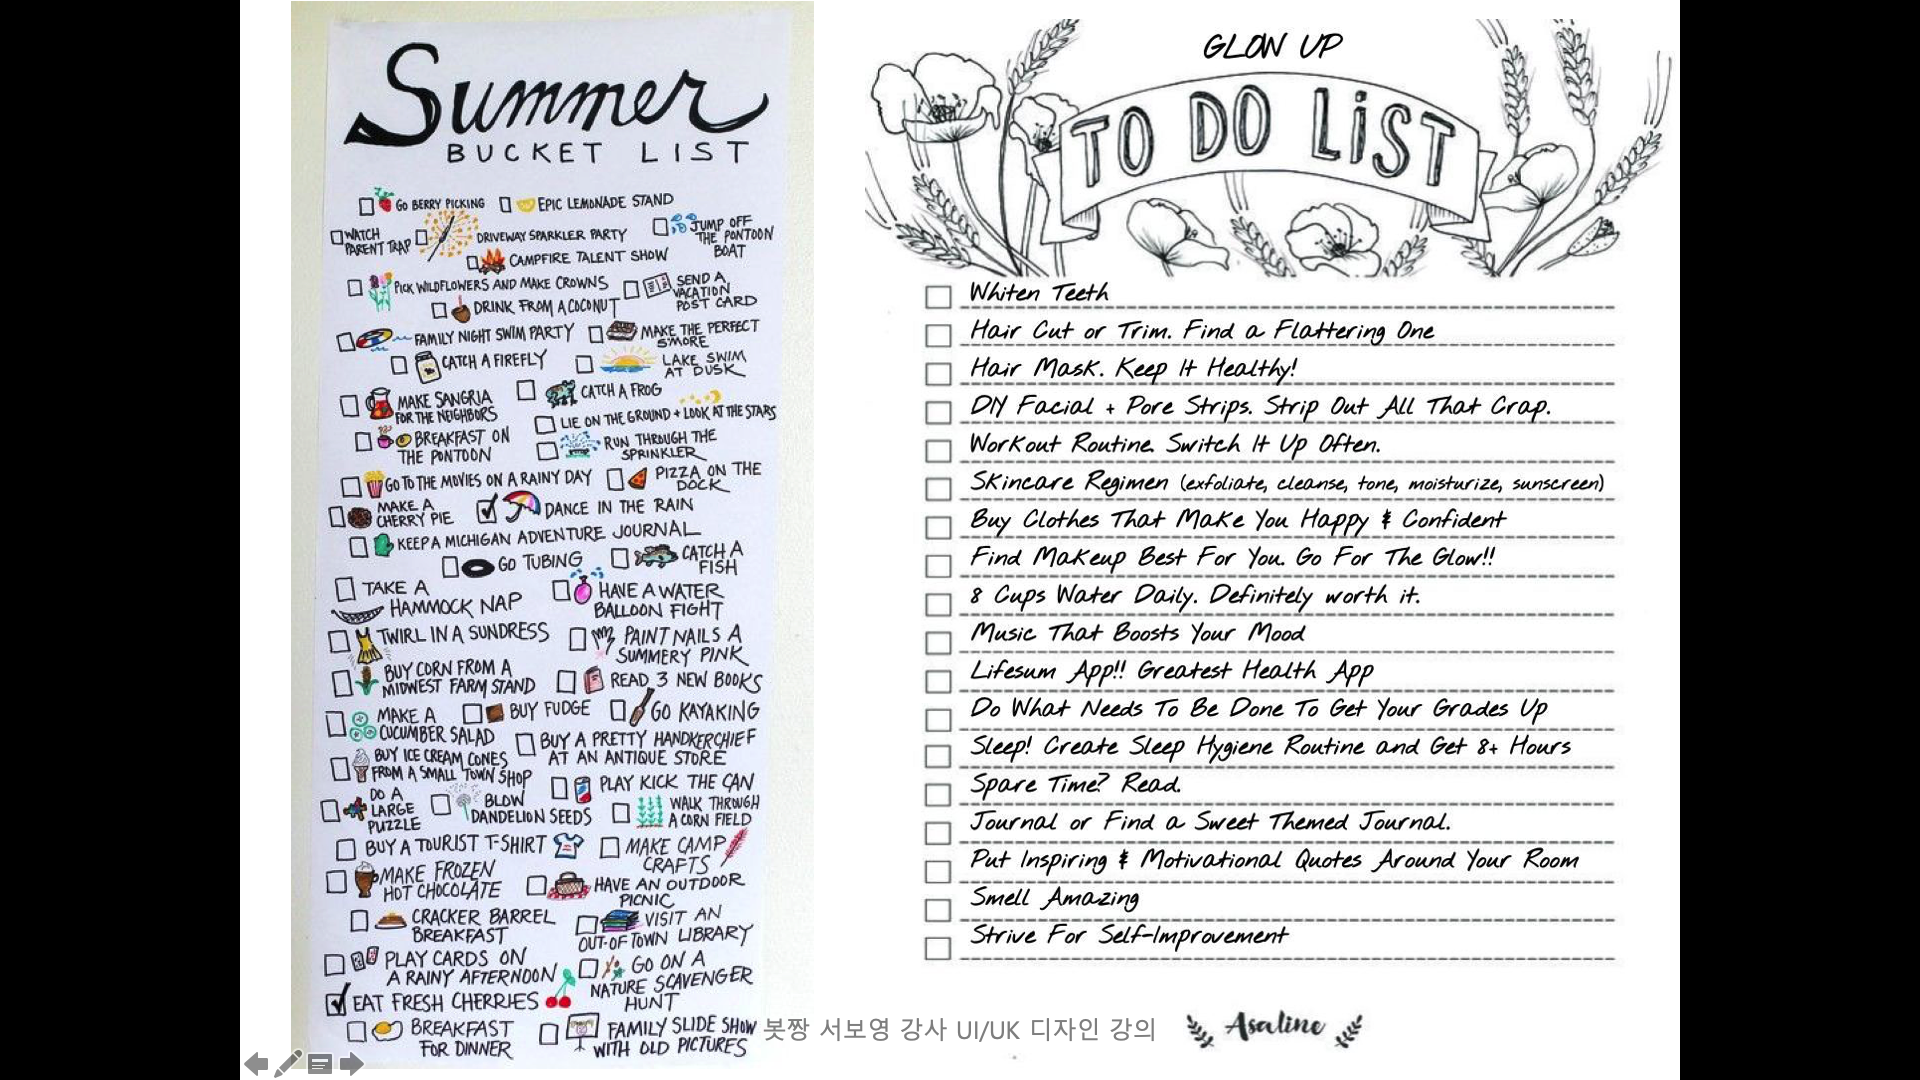 Summer
BUCKET LIST
GO BERRY PICKING
EPIC LEMONADE STAND
WATCH
PARENT TRAP
DRIVEWAY SPARKLER PARTY
JUMP OFF
THE PONTOON
BOAT
CAMPFIRE TALENT SHOW
PICK WILDFLOWERS AND MAKE CROWNS
SEND A
VACATION
POST CARD
DRINK FROM A COCONUT
FAMILY NIGHT SWIM PARTY
MAKE THE PERFECT
S'MORE
CATCH A FIREFLY
LAKE SWIM
AT DUSK
MAKE SANGRIA
FOR THE NEIGHBORS
CATCH A FROG
LIE ON THE GROUND + LOOK AT THE STARS
BREAKFAST ON
THE PONTOON
RUN THROUGH THE
SPRINKLER
GO TO THE MOVIES ON A RAINY DAY
PIZZA ON THE
DOCK
MAKE A
CHERRY PIE
DANCE IN THE RAIN
KEEP A MICHIGAN ADVENTURE JOURNAL
GO TUBING
CATCH A
FISH
TAKE A
HAMMOCK NAP
HAVE A WATER
BALLOON FIGHT
TWIRL IN A SUNDRESS
PAINT NAILS A
SUMMERY PINK
BUY CORN FROM A
MIDWEST FARM STAND
READ 3 NEW BOOKS
MAKE A
CUCUMBER SALAD
BUY FUDGE
GO KAYAKING
BUY A PRETTY HANDKERCHIEF
AT AN ANTIQUE STORE
BUY ICE CREAM CONES
FROM A SMALL TOWN SHOP
PLAY KICK THE CAN
DO A
LARGE
PUZZLE
BLOW
DANDELION SEEDS
WALK THROUGH
A CORN FIELD
BUY A TOURIST T-SHIRT
MAKE CAMP
CRAFTS
MAKE FROZEN
HOT CHOCOLATE
HAVE AN OUTDOOR
PICNIC
CRACKER BARREL
BREAKFAST
VISIT AN
OUT-OF TOWN LIBRARY
PLAY CARDS ON
A RAINY AFTERNOON
GO ON A
NATURE SCAVENGER
HUNT
EAT FRESH CHERRIES
BREAKFAST
FOR DINNER
FAMILY SLIDE SHOW
WITH OLD PICTURES
GLOW UP
TO DO LiST
Whiten Teeth
Hair Cut or Trim. Find a Flattering One
Hair Mask. Keep It Healthy!
DIY Facial + Pore Strips. Strip Out All That Crap.
Workout Routine. Switch It Up Often.
Skincare Regimen (exfoliate, cleanse, tone, moisturize, sunscreen)
Buy Clothes That Make You Happy & Confident
Find Makeup Best For You. Go For The Glow!!
8 Cups Water Daily. Definitely worth it.
Music That Boosts Your Mood
Lifesum App!! Greatest Health App
Do What Needs To Be Done To Get Your Grades Up
Sleep! Create Sleep Hygiene Routine and Get 8+ Hours
Spare Time? Read.
Journal or Find a Sweet Themed Journal.
Put Inspiring & Motivational Quotes Around Your Room
Smell Amazing
Strive For Self-Improvement
봇짱 서보영 강사 UI/UK 디자인 강의
Asaline